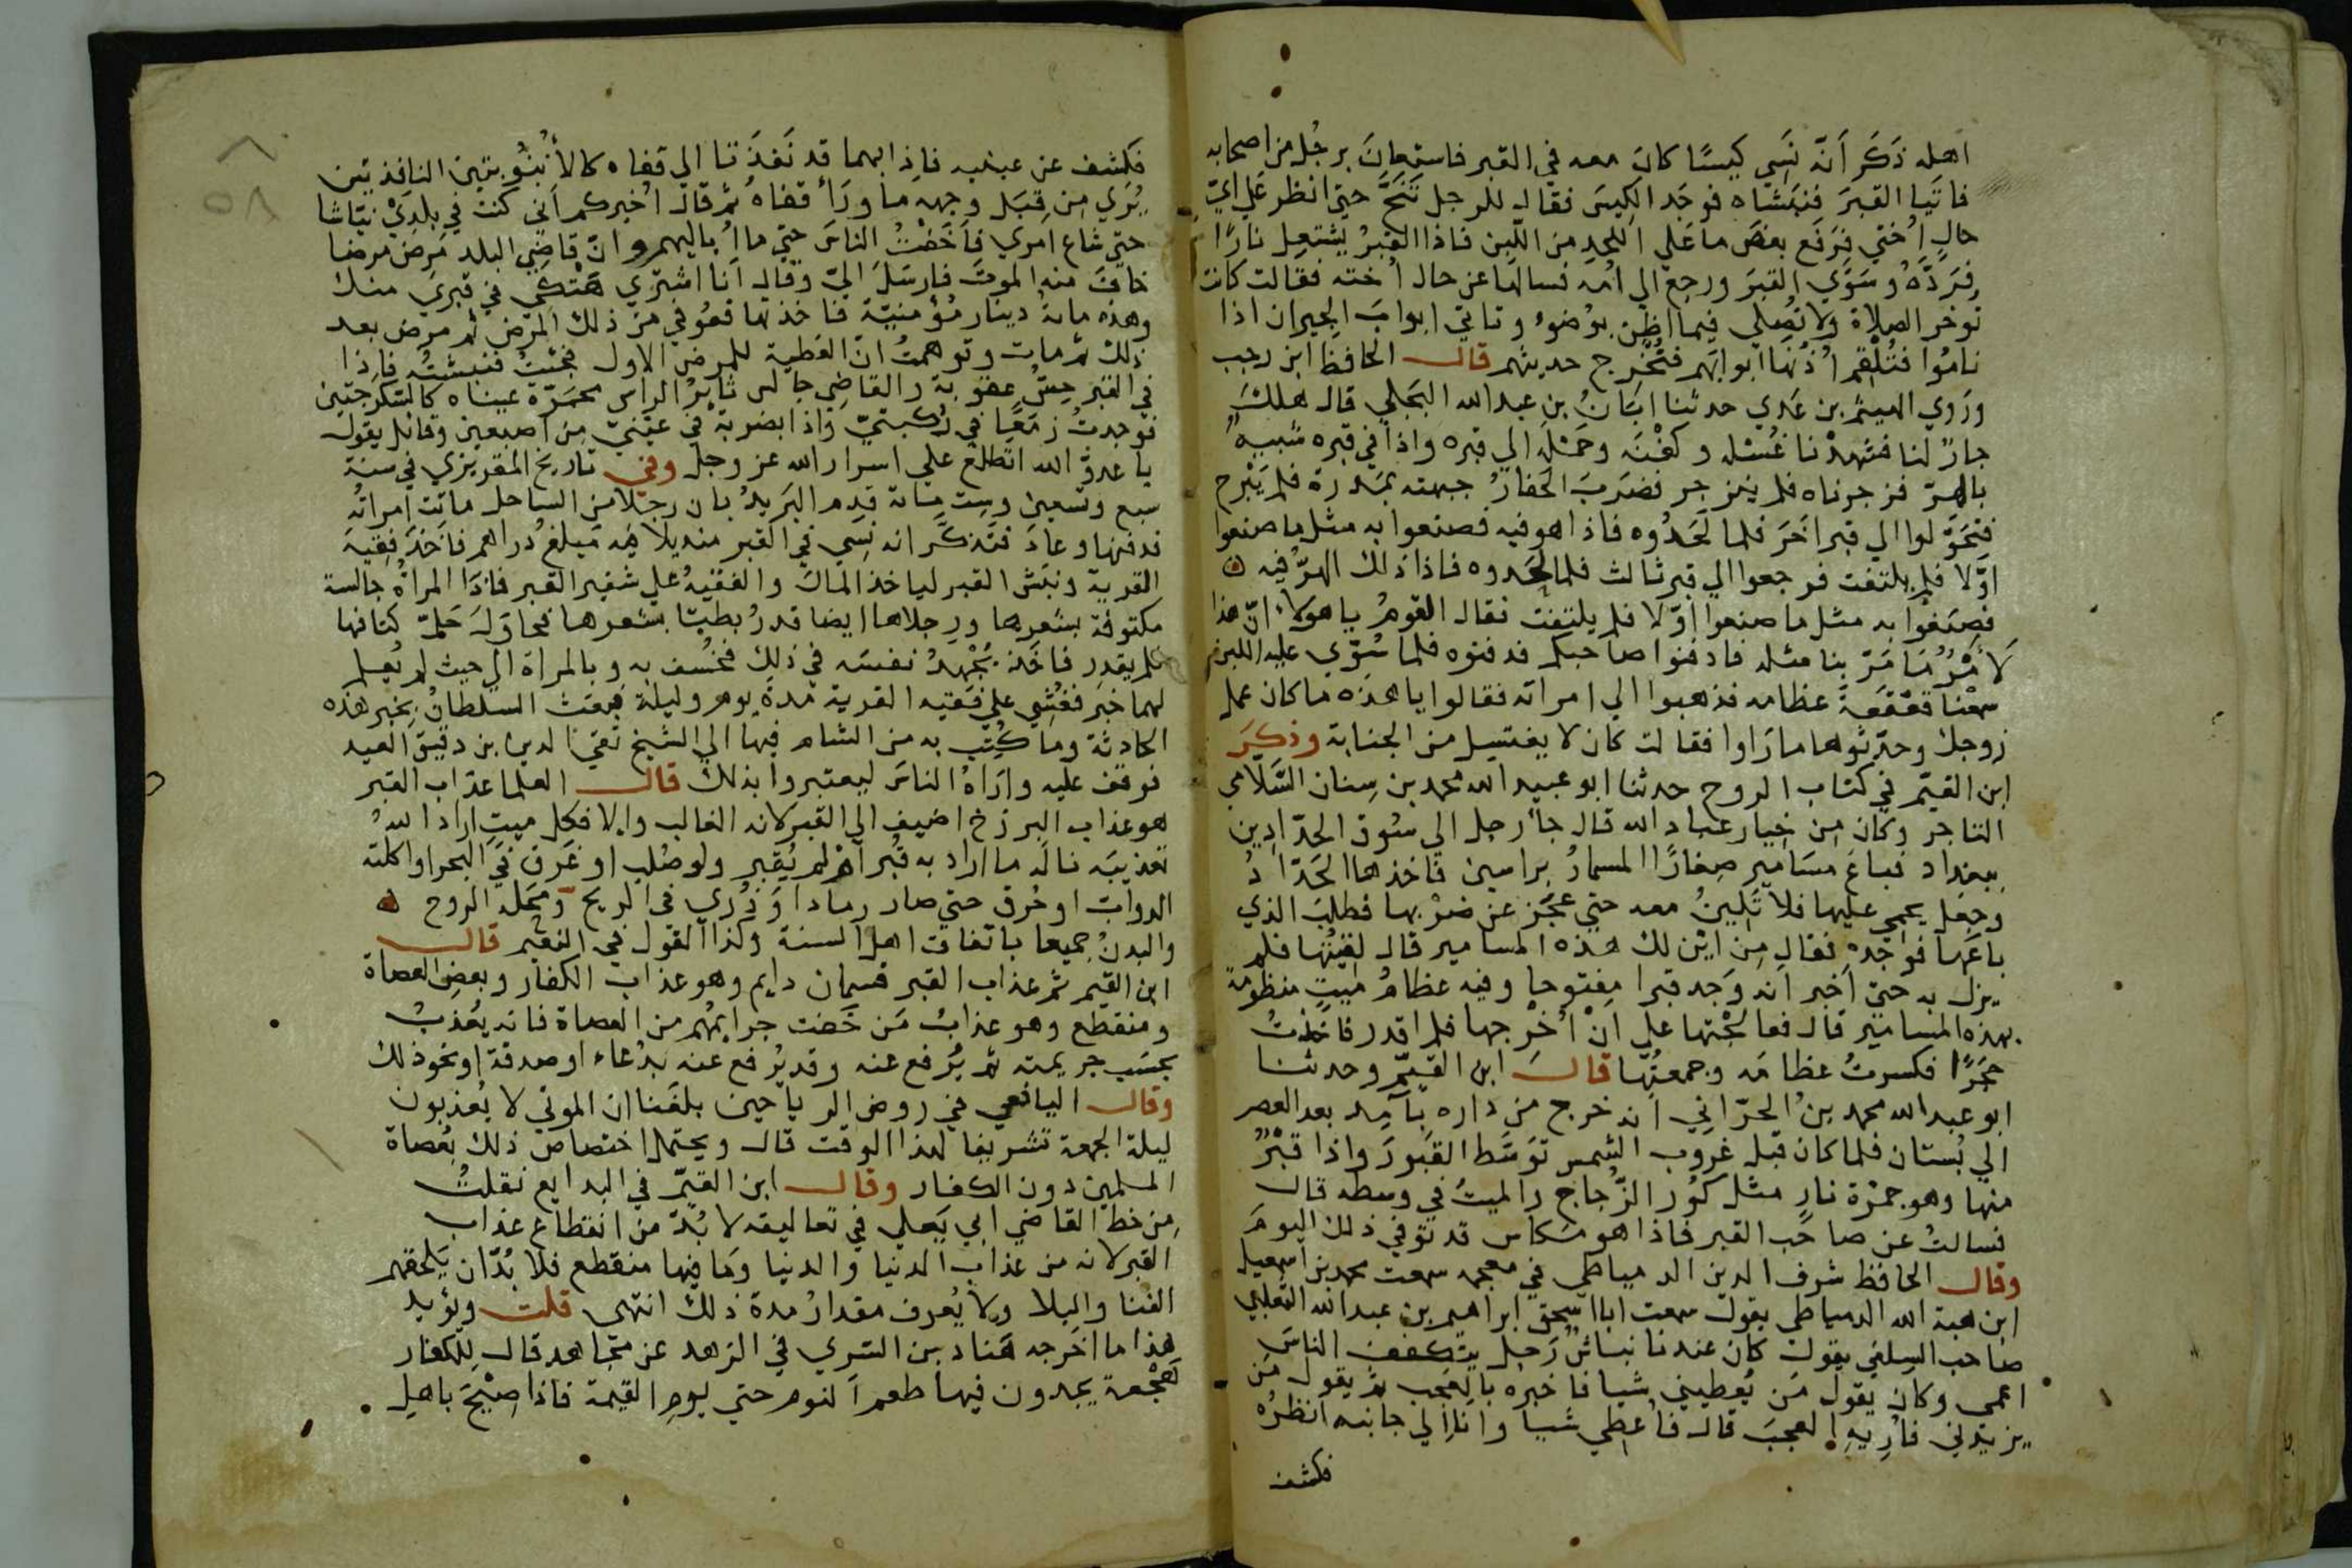 اهله ذَكَر اَنّه نَسِي كيسًا كانَ معه في القبر فاستعانَ برجُل من اصحابه
فاتَيا القبرَ فنبَشاه فوجَد الكيسَ فقال للرجل تَنَحَّ حتى انظر عَلى ايِّ
حالٍ اُختي فرَفَع بعضَ ما عَلى اللحدِ من اللَّبِن فاذا القبرُ يشتعِل نارًا
فرَدَّه وسَوَّي القبرَ ورجع الي اُمه فسالها عن حال اُخته فقالت كانت
تُوخر الصلاةَ ولا تُصلي فيما اظن بوُضوء وتاتي ابوابَ الجيران اذا
نامُوا فتُلْقم اُذُنَها ابوابَهم فتُخرج حديثهم قال الحافظ ابن رجب
ورَوي الهيثم بن عَدي حدثنا ابَانُ بن عبد الله البَجَلي قال هلك
جارٌ لنا فشهِدْنا غُسْله وكفْنَه وحَمْلَه الي قبره واذا في قبره شبيهٌ
بالهِرّ فزجرناه فلم ينزجر فضرَبَ الحفارُ جبهته بمَدرة فلم يَبْرح
فتحَوّلوا الي قبر اخَرَ فلما لَحَدُوه فاذا هو فيه فصنعوا به مثل ما صنعوا
اوّلا فلم يلتفت فرجعوا الي قبر ثالث فلما لَحَدوه فاذا ذلك الهِرُّ فيه
فصَنعُوا به مثل ما صنعوا اوّلا فلم يلتفت فقال القومُ يا هولاء انّ هذا
لاَمْرٌ مَا مَرّ بنا مثله فادفنوا صاحبكم فدفنوه فلما سُوّي عليه اللبن
سمعْنا قعْقعَةَ عظامه فذهبوا الي امراته فقالوا يا هذه ما كان عمل
زوجك وحدّثوها ما رَاَوا فقالت كان لا يغتسِل من الجنابة وذكرَ
ابن القيّم في كتاب الروح حدثنا ابو عبيد الله محمد بن سِنان السَّلامي
التاجر وكان من خيار عباد الله قال جاَ رجل الي سُوق الحدّادين
ببغداد فباعَ مسَامير صِغارًا المسمارُ براسين فاخذها الحَدّادُ
وجعَل يحمي عليها فلا تَلِينُ معه حتي عَجَز عن ضرْبها فطلبَ الذي
باعَها فوَجَده فقال مِن اَيْن لك هذه المسامير قال لقِيتُها فلم
يزل به حتي اَخبَر انه وَجَد قبرا مفتوحا وفيه عظامُ ميتٍ منظومة
بهذه المسامير قال فعالَجْتها علي انْ اُخْرجها فلم اقدر فاخذتُ
حَجَرًا فكسرتُ عظامَه وجمعتُها قال ابن القيّم وحدثنا
ابو عبد الله محمد بن الحرّاني انه خرج من داره بآمِد بعد العصر
الي بُستان فلما كان قبل غروب الشمس توَسّط القبورَ واذا قبْرٌ
منها وهو جمرْة نارٍ مثل كُورِ الزُّجاج والميتُ في وسطه قال
فسالتُ عن صاحب القبر فاذا هو مَكاس قد توفي ذلك اليومَ
وقال الحافظ شرف الدين الدمياطي في معجمه سمعت محمد بن اسمعيل
ابن هبة الله الدمياطي يقول سمعت ابا اسحق ابراهيم بن عبد الله الثعلبي
صاحب السِلفي يقول كان عندنا نباشٌ رَجل يتكفف الناسَ
اعمى وكان يقول مَن يُعطيني شيا فاخبرُه بالعَجب ثم يقول مَن
يزيدُني فاُرِيهِ العجبَ قال فاُعطي شيا وانا الي جانبه انظرُه
فكشف
فكشف عن عينيه فاِذا بهما قد نَفَذَتا الي قفاه كالاُنْبُوبتين النافِذتين
يُرَي من قِبَل وجهه ما ورَاَ قفاهُ ثم قال اُخبركم اَني كنت في بلدي نبّاشا
حتي شاع امري فاَخَفْتُ الناسَ حتي ما اُباليهم وانّ قاضي البلد مَرِض مرضا
خافَ منه الموتَ فارسَلَ اليّ وقال اَنا اشتري هَتْكِي في قبري منك
وهذه مائةُ دينار مُؤمنيّة فاخذتها فعُوفي من ذلك المرض ثم مرِض بعد
ذلك ثم مات وتوهمتُ انّ العَطية للمرض الاول فجئتُ فنبشتُه فاِذا
في القبر حِسُّ عقوبة والقاضي جالس ثاير الراس محمَرّة عيناه كالسُّكرجتين
فوجدتُ زَمَعًا في رُكبتيّ واِذا بضربة في عينيّ مِن اصبعين وقائل يقول
يا عدوّ الله اتطلع علي اسرار الله عز وجل وفي تاريخ المقريزي في سنة
سبع وتسعين وستماية قدِم البَريدُ بان رجلا من الساحل ماتت امراتُه
فدفنها وعادَ فتَذكَّر انه نَسِي في القبر منديلا فيه مَبلغُ دراهم فاَخذ فقِيهَ
القرية ونبَش القبر لياخذ المالَ والفقيهُ علي شفير القبر فاِذا المراةُ جالسة
مكتوفة بشَعرها ورجلاها ايضا قد رُبطتا بشعرها فحاوَلَ حَلّ كتافها
فلم يقدِر فاَخذ يُجْهِدُ نفسَه في ذلك فخُسف به وبالمراة الي حيث لم يُعلم
لهما خبَر فغُشي علي فقيه القرية مدةَ يوم وليلة فبعَث السلطانُ بخبر هذه
الحادثة وما كُتِب به من الشام فيها الي الشيخ تقي الدين بن دقيق العيد
فوقف عليه وارَاهُ الناسَ ليعتبروا بذلك قال العلما عذاب القبر
هو عذاب البرزخ اضيف الي القبر لانه الغالب والا فكل ميتٍ اراد اللهُ
تعذيبَه نالَه ما اراد به قُبر اَمْ لم يُقبر ولو صُلب او غرَق في البحر او اكلته
الدوابّ او حُرق حتي صار رمادا وذُري في الريح ومحَله الروح
والبدنُ جميعا باتفاق اهل السنة وكذا القول في النعيم قال
ابن القيم ثم عذاب القبر قسمان دايم وهو عذاب الكفار وبعض العصاة
ومنقطع وهو عذابُ مَن خَفت جرايمُهم من العصاة فانه يُعذبُ
بحسَب جريمته ثم يُرفع عنه وقد يُرفع عنه بدُعاء او صدقة او نحو ذلك
وقال اليافعي في روض الرياحين بلغَنا ان الموتي لا يُعذبون
ليلة الجمعة تشريفا لهذا الوقت قال ويحتمل اختصاص ذلك بعُصاة
المسلمين دون الكفار وقال ابن القيّم في البدايع نقلتُ
مِن خط القاضي ابي يَعلي في تعاليقه لا بُدّ من انقطاع عذاب
القبر لانه من عذاب الدنيا والدنيا وما فيها منقطع فلا بُدّ ان يَلحقهم
الفنا والبِلا ولا يُعرف مقدارُ مدة ذلك انتهى قلت ويؤيد
هذا ما اخرجه هَناد بن السَري في الزهد عن مجاهد قال للكفار
هَجْعة يجدون فيها طعم النوم حتي يوم القيمة فاذا صِيْحَ باهل